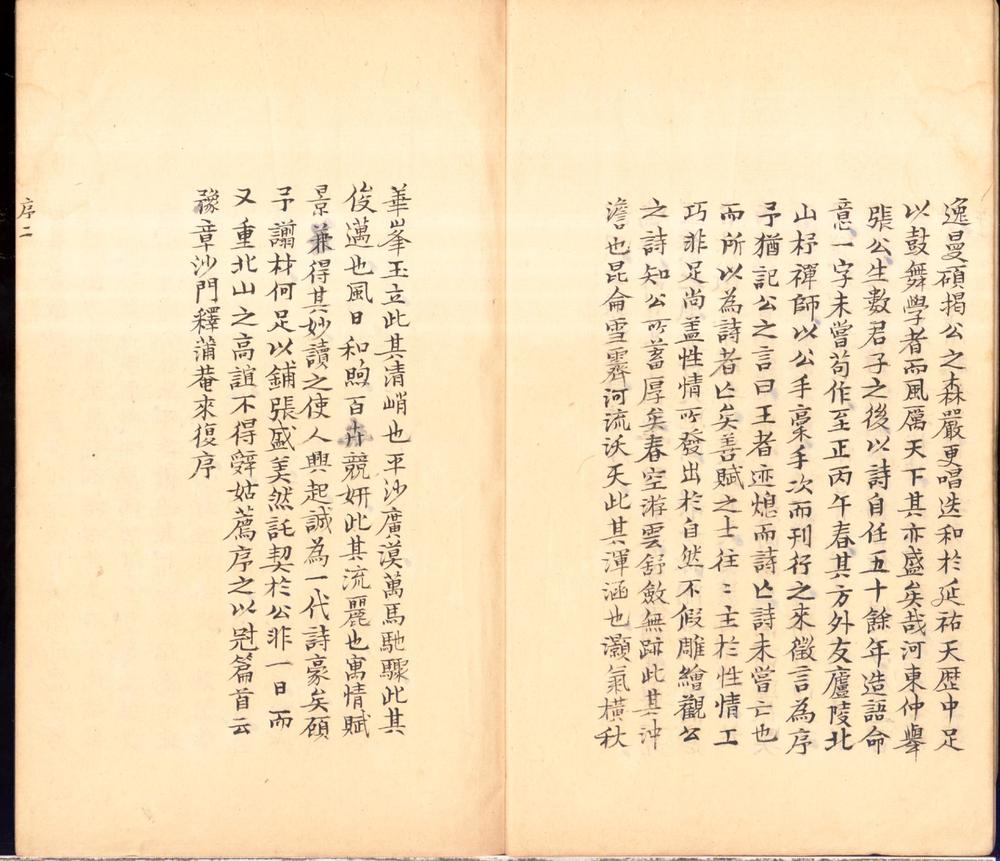 逸曼碩揭公之森嚴更唱迭和於延祐天歷中足
以鼓舞學者而風厲天下其亦盛矣哉河東仲舉
張公生數君子之後以詩自任五十餘年造語命
意一字未嘗苟作至正丙午春其方外友廬陵北
山杼禪師以公手稾手次而刊行之來徵言為序
予猶記公之言曰王者迹熄而詩亡詩未嘗亡也
而所以為詩者亡矣善賦之士往〻主於性情工
巧非足尚盖性情所發出於自然不假雕繪觀公
之詩知公所蓄厚矣春空游雲舒斂無跡此其沖
澹也昆侖雪霽河流沃天此其渾涵也灝氣橫秋
華峯玉立此其清峭也平沙廣漠萬馬馳驟此其
俊邁也風日和煦百卉競妍此其流麗也寓情賦
景兼得其妙讀之使人興起誠為一代詩豪矣顧
予謭材何足以鋪張盛美然託契於公非一日而
又重北山之高誼不得辤姑薦序之以冠篇首云
豫章沙門釋蒲菴來復序
序二